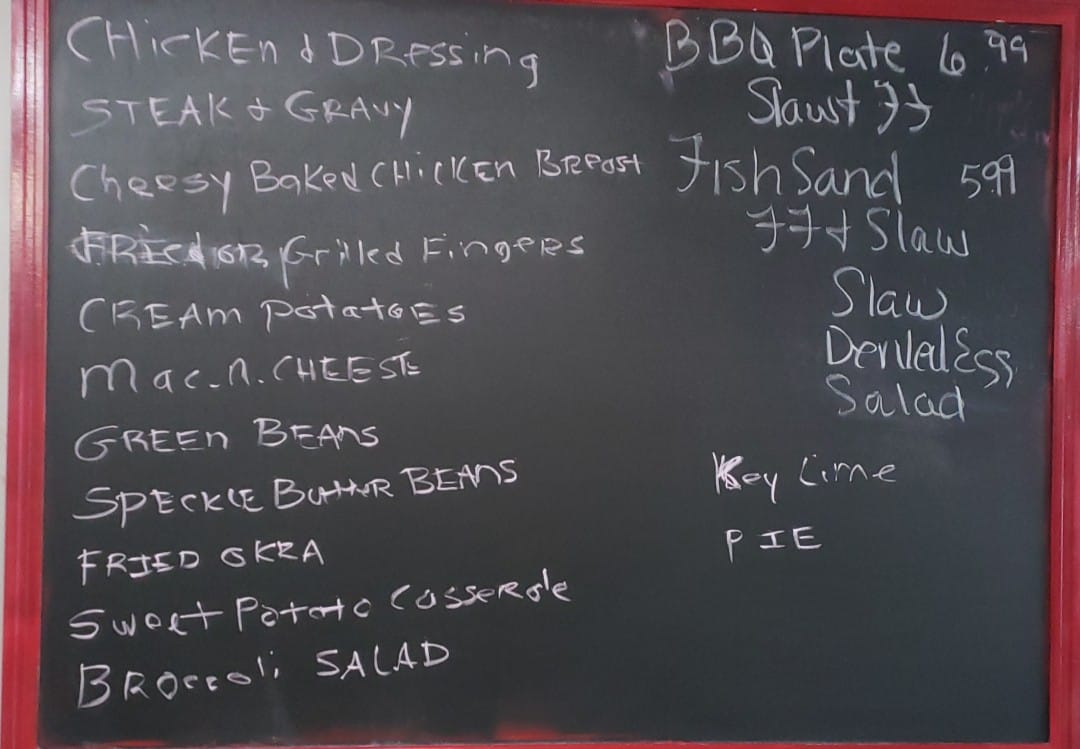 CHicKEn & DRessing
STEAK & GRAVY
Cheesy BaKed CHicKEn BReast
FRied OR Grilled FingeRS
CREAm potatoES
mac.n.CHEESE
GREEn BEAns
SPECKLE ButtER BEANS
FRIED OKRA
Sweet Potato CasseRole
BRoccoli SALAD
BBQ Plate 6.99
Slaw & FF
Fish Sand 5.99
FF & Slaw
Slaw
Deviled Egg
Salad
Key Lime
PIE